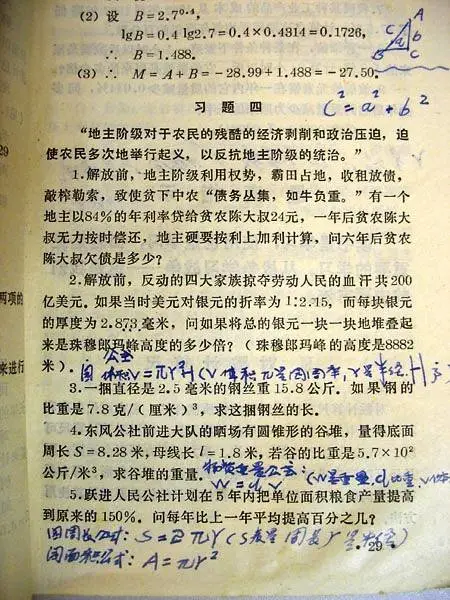 (2) 设 B=2.7⁰·⁴,
lgB=0.4 lg2.7=0.4×0.4314=0.1726,
∴ B=1.488.
(3) ∴ M=A+B=-28.99+1.488=-27.50.
A
C b
a
B C
C²=a²+b²
习题四
“地主阶级对于农民的残酷的经济剥削和政治压迫，迫
使农民多次地举行起义，以反抗地主阶级的统治。”
1.解放前，地主阶级利用权势，霸田占地，收租放债，
敲榨勒索，致使贫下中农“债务丛集，如牛负重。”有一个
地主以84%的年利率贷给贫农陈大叔24元，一年后贫农陈大
叔无力按时偿还，地主硬要按利上加利计算，问六年后贫农
陈大叔欠债是多少？
2.解放前，反动的四大家族掠夺劳动人民的血汗共200
亿美元。如果当时美元对银元的折率为1:2.15，而每块银元
的厚度为2.873毫米，问如果将总的银元一块一块地堆叠起
来是珠穆郎玛峰高度的多少倍？（珠穆郎玛峰的高度是8882
米）.
公式
圆体积V=πr²H (V体积 π是圆周率, r是半径, H高
3.一捆直径是2.5毫米的钢丝重15.8公斤．如果钢的
比重是7.8克/（厘米）³，求这捆钢丝的长．
4.东风公社前进大队的晒场有圆锥形的谷堆，量得底面
周长S=8.28米，母线长l=1.8米，若谷的比重是5.7×10²
公斤/米³，求谷堆的重量．
公式: (W是重量, d比重, V体
W=d·V
5.跃进人民公社计划在5年内把单位面积粮食产量提高
到原来的150%．问每年比上一年平均提高百分之几？
圆周长公式: S=2πr (S表是圆长 r是半径)
圆面积公式: A=πr²
·29·
29
两项的
来进行